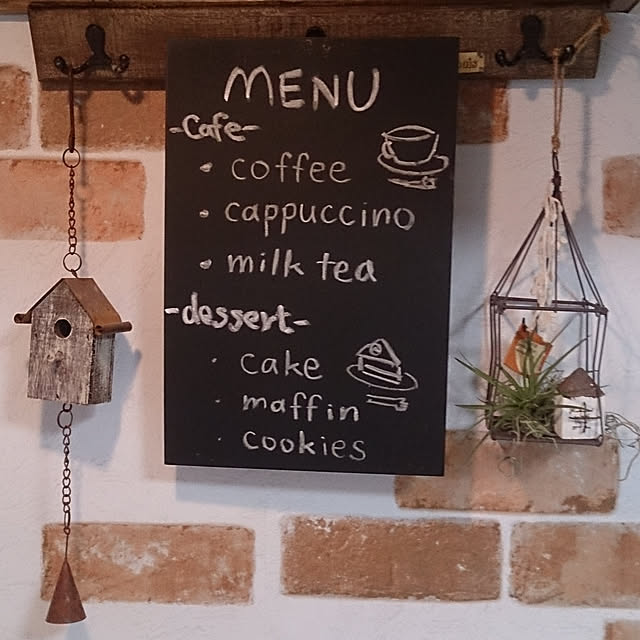 MENU
-Cafe-
• coffee
• cappuccino
• milk tea
-dessert-
• cake
• maffin
• cookies